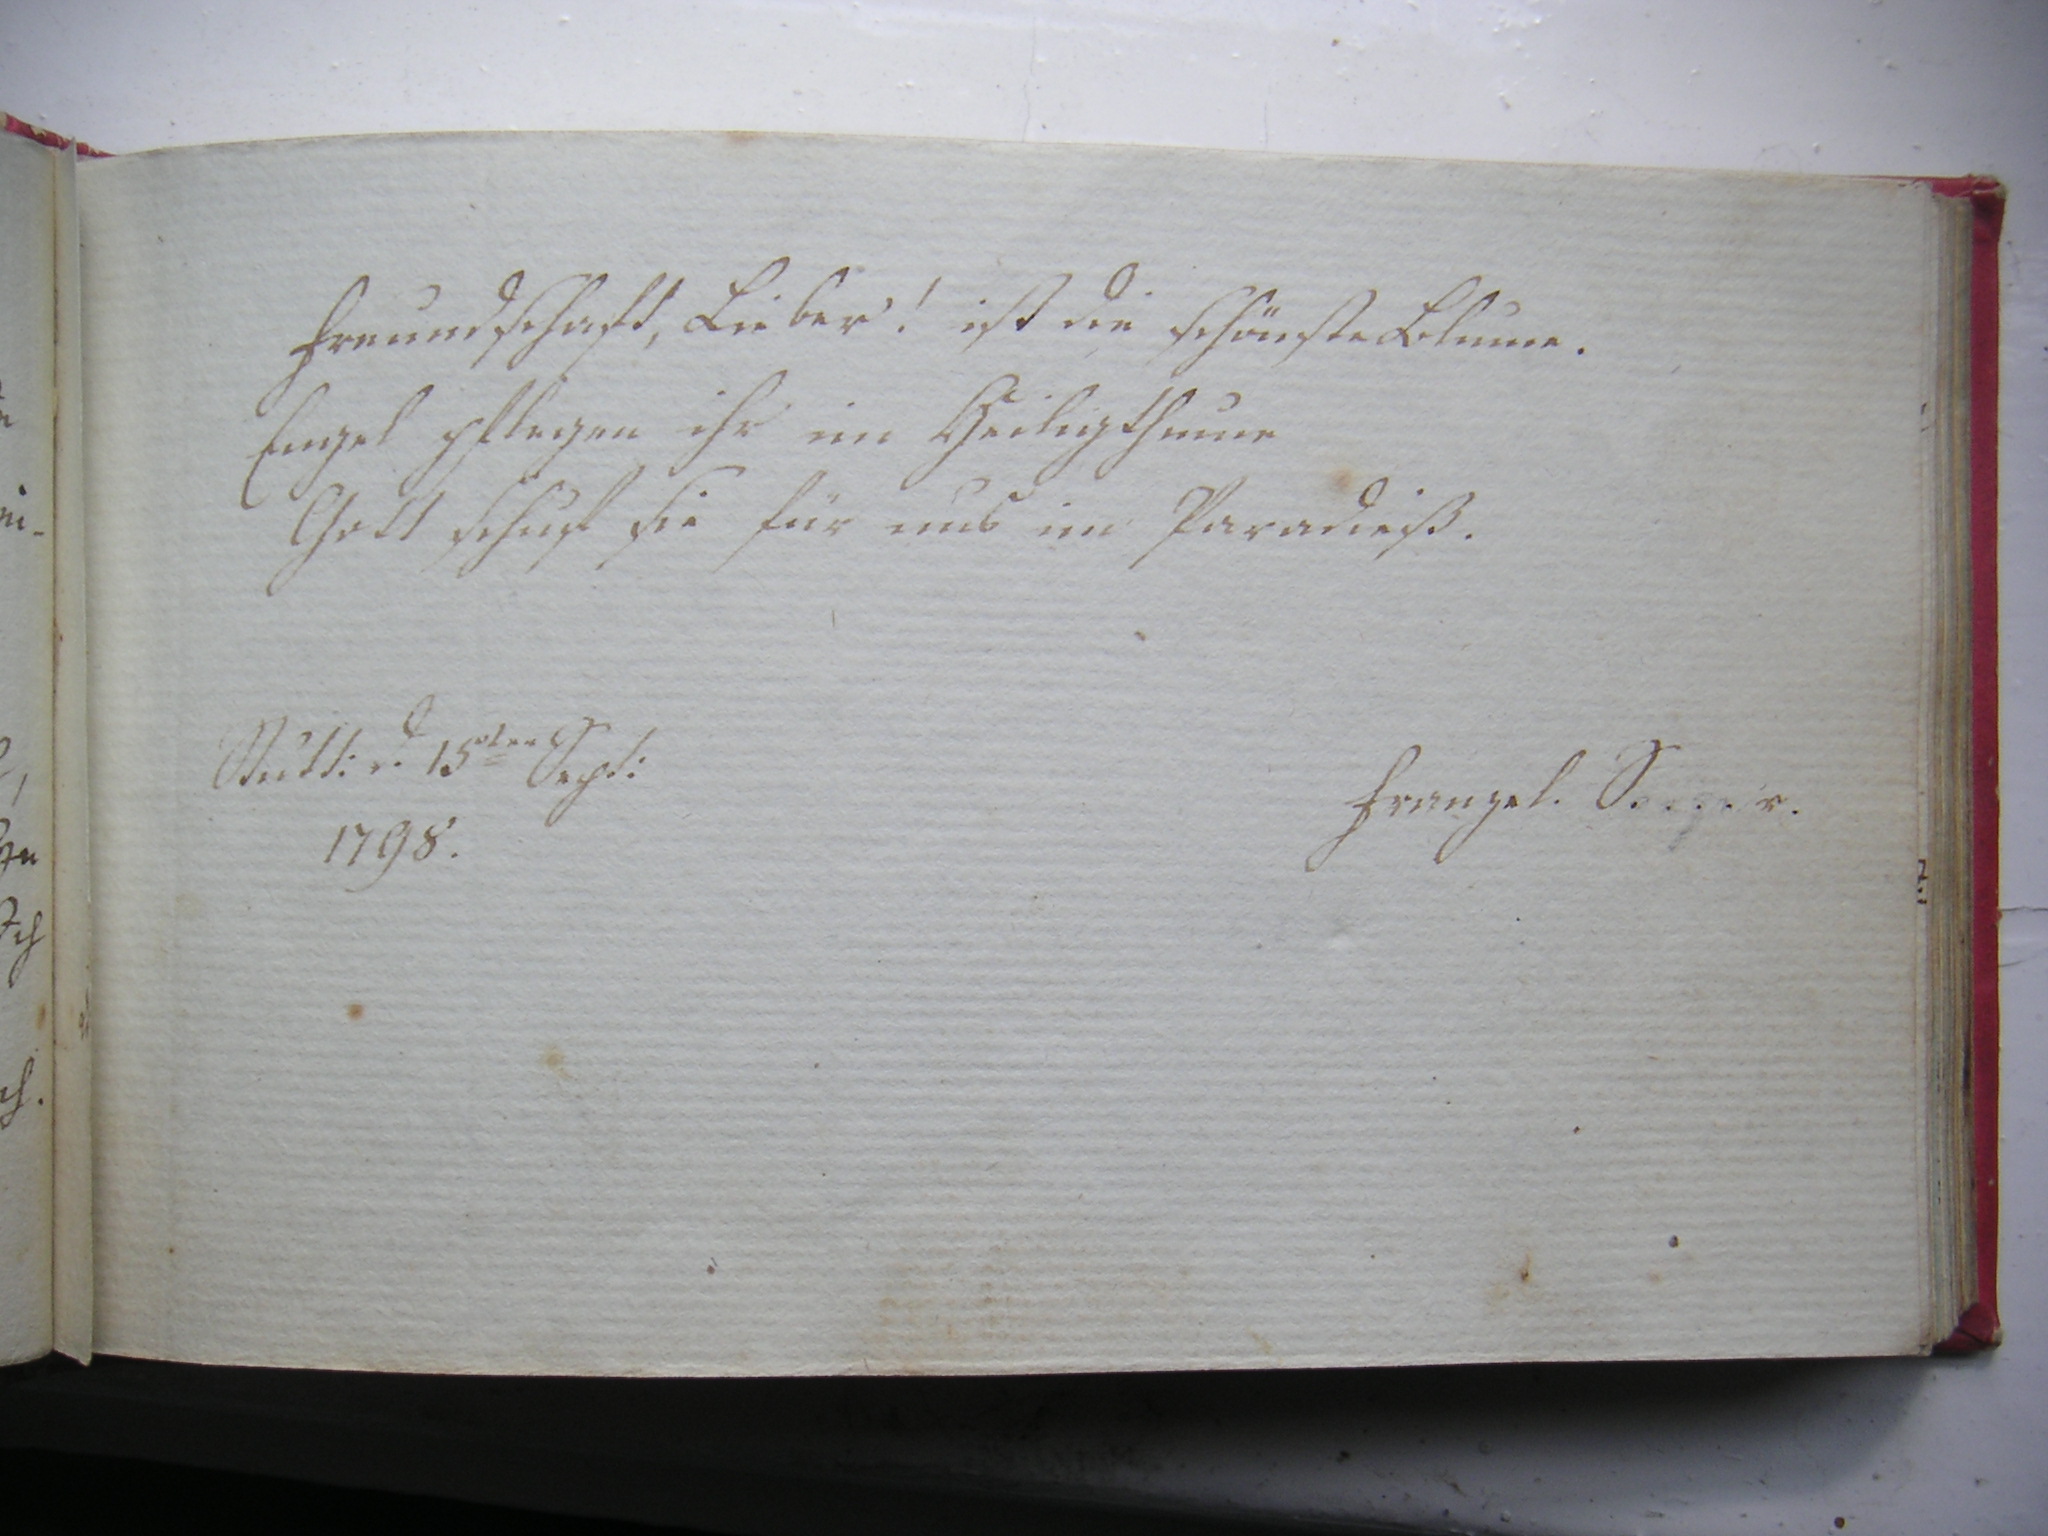 Freundschaft, Lieber! ist die schönste Blume.
Engel pflegen ihr im Heiligthume
Gott schuf sie für uns im Paradieß.
Stutt: d. 15ten Sept:
1798.